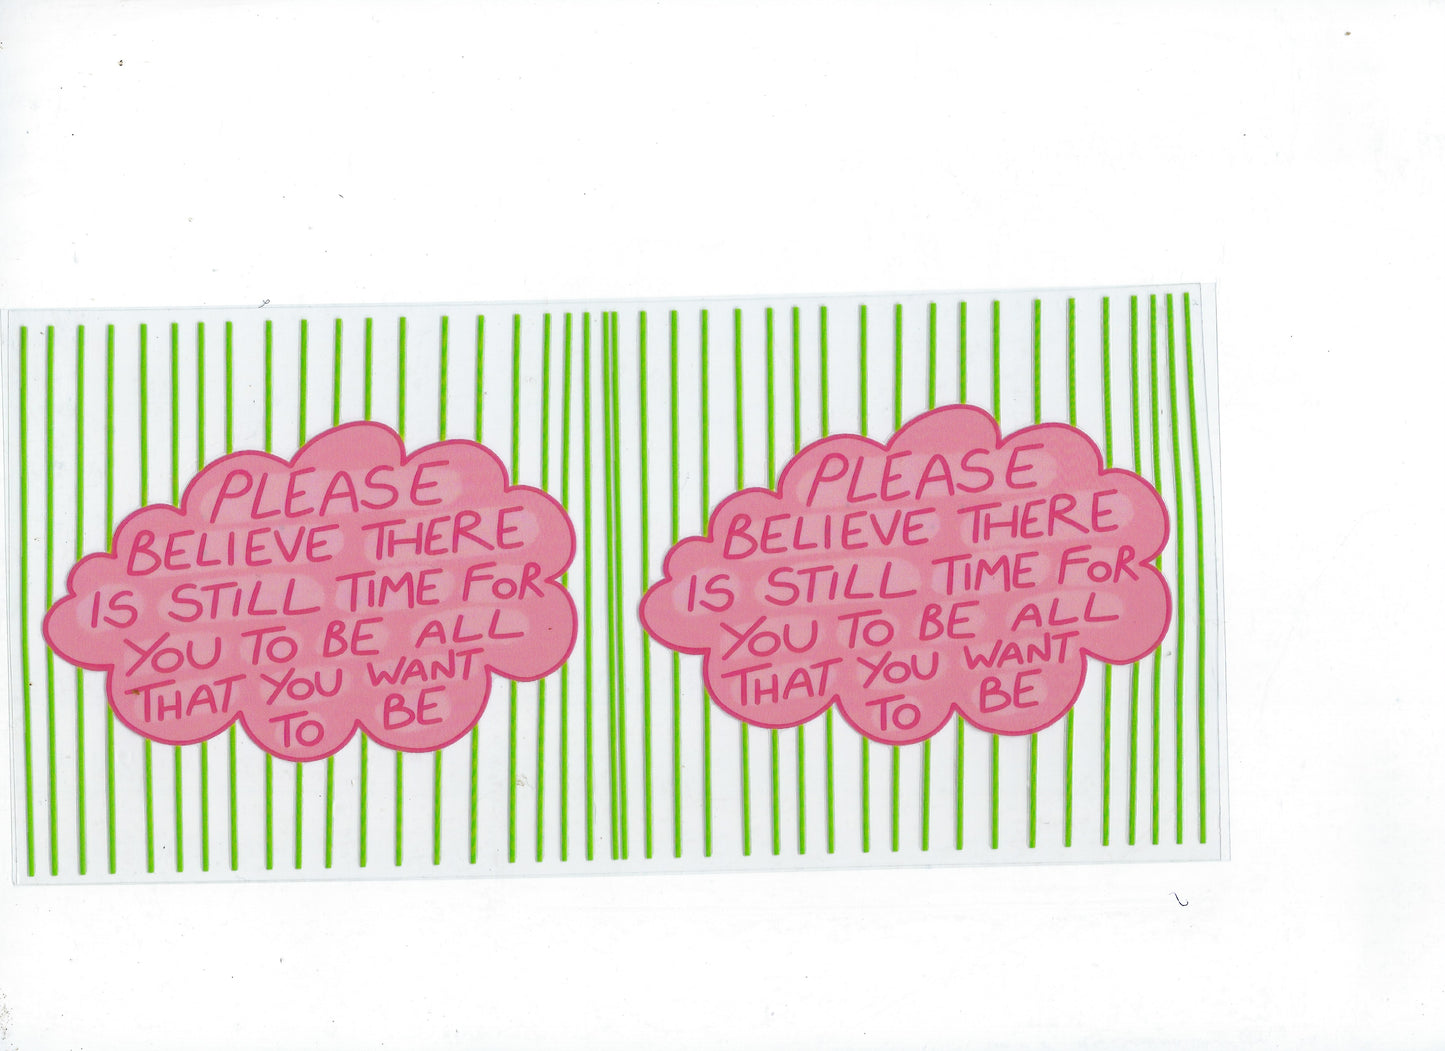 PLEASE
BELIEVE THERE
IS STILL TIME FOR
YOU TO BE ALL
THAT YOU WANT
TO BE
PLEASE
BELIEVE THERE
IS STILL TIME FOR
YOU TO BE ALL
THAT YOU WANT
TO BE